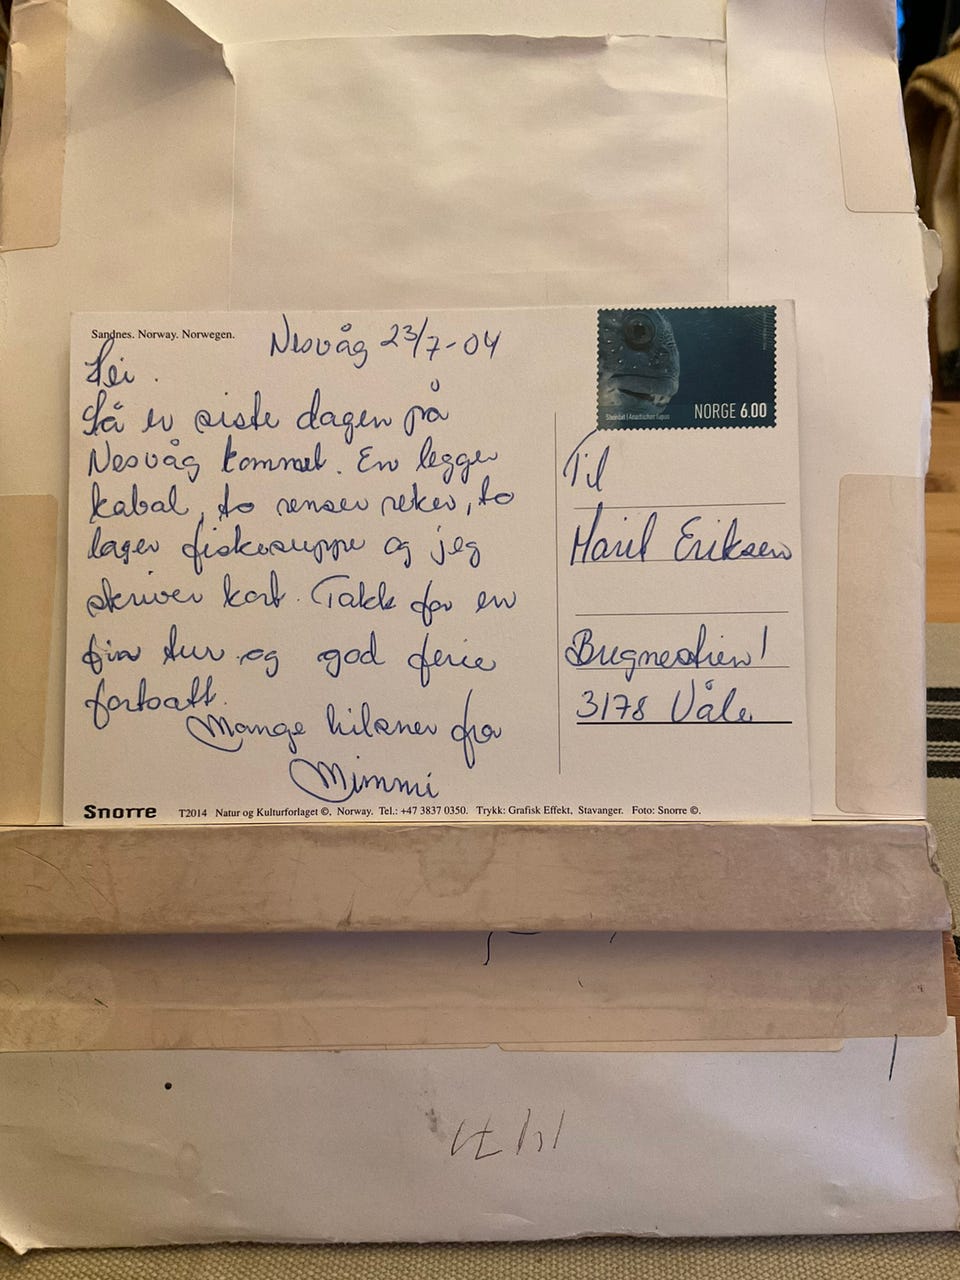 Sandnes. Norway. Norwegen.
Nesvåg 23/7-04
Hei.
Så er siste dagen på
Nesvåg kommet. En legger
kabal, to renser reker, to
lager fiskesuppe og jeg
skriver kort. Takk for en
fin tur og god ferie
fortsatt.
Mange hilsner fra
Mimmi
Steinbit | Anarhichas lupus
NORGE 6.00
Til
Marit Eriksen
3178 Våle
Snorre T2014 Natur og Kulturforlaget ©, Norway. Tel.: +47 3837 0350. Trykk: Grafisk Effekt, Stavanger. Foto: Snorre ©.